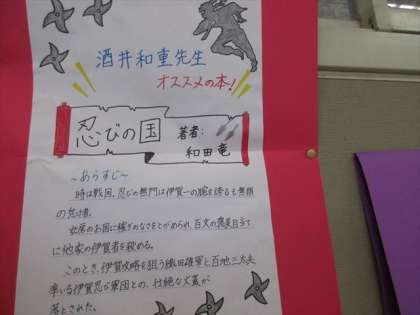 酒井和重先生
オススメの本!
忍びの国
著者:
和田竜
〜あらすじ〜
時は戦国。忍びの無門は伊賀一の腕を誇るも無類
の怠け者。
女房のお国に稼ぎのなさをとがめられ、百文の褒美目当て
に他家の伊賀者を殺める。
このとき、伊賀攻略を狙う織田信雄軍と百地三太夫
率いる伊賀忍び軍団との、壮絶な火蓋が
落とされた。